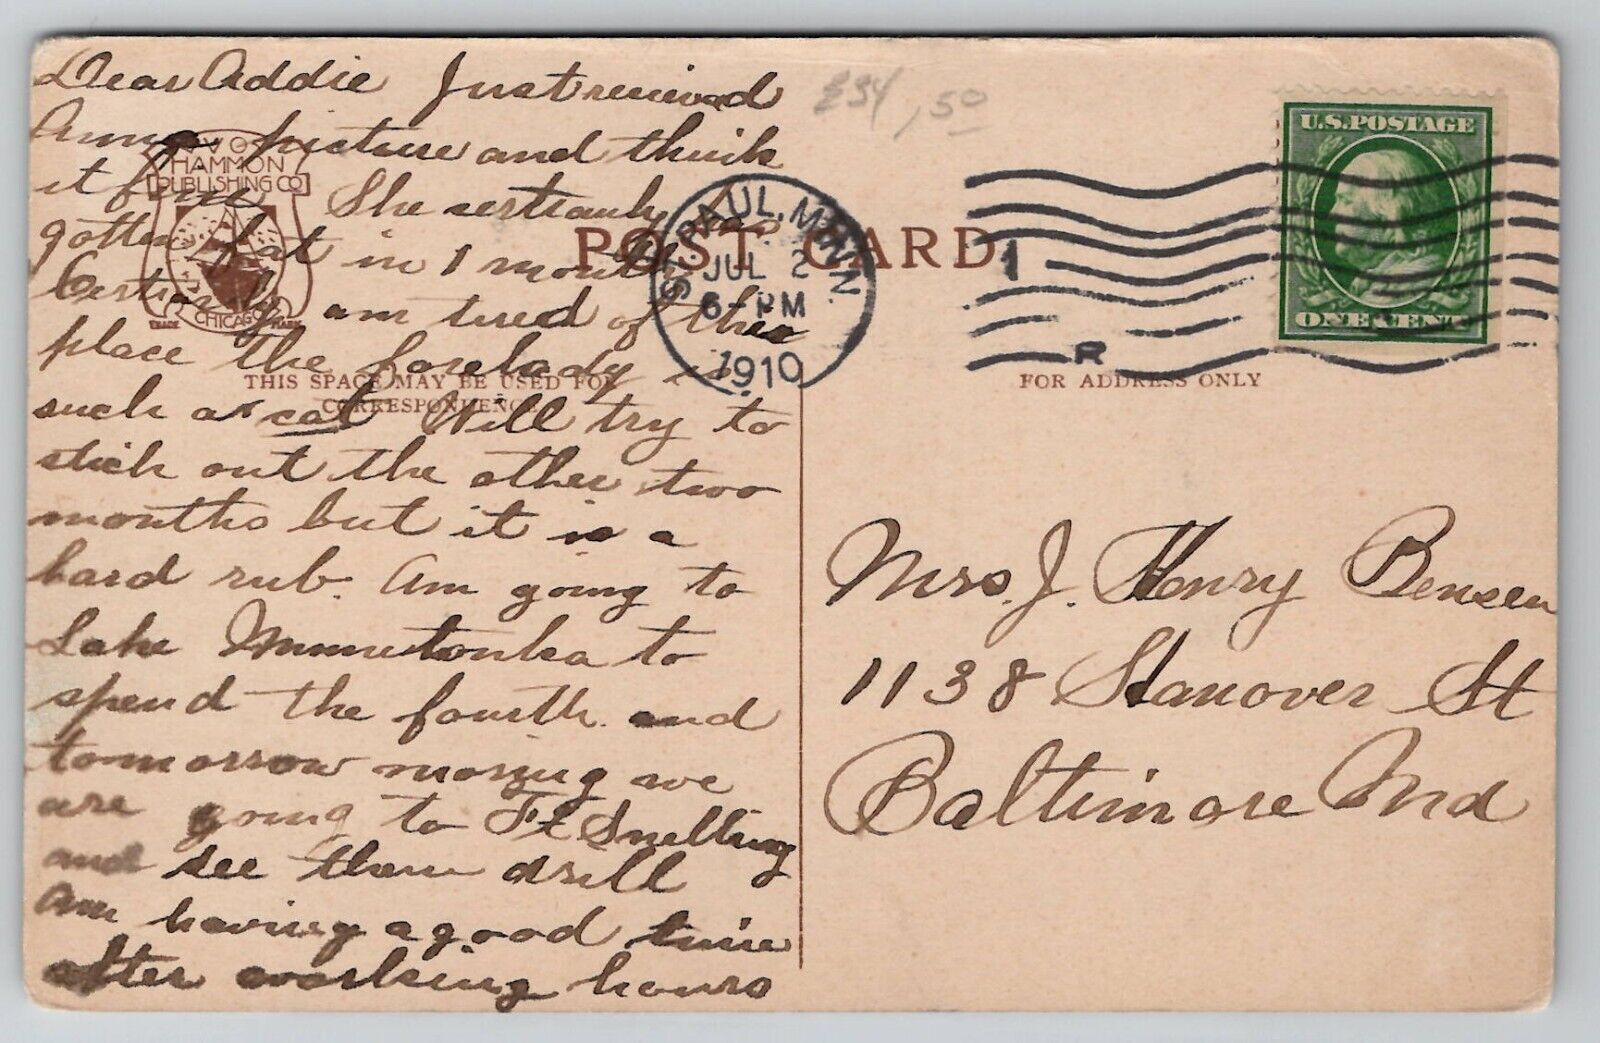 Dear Addie Just recieved
Anna picture and think
it fine She sertianly has
gotten fat in 1 month
Certianly am tired of this
place the forelady is
such a cat Will try to
stick out the other two
months but it is a
hard rub. Am going to
Lake Minnetonka to
spend the fourth and
tomorrow morning we
are going to Ft Snelling
and see them drill
Am having a good time
after working hours
V O HAMMON
PUBLISHING CO
CHICAGO
TRADE MARK
POST CARD
THIS SPACE MAY BE USED FOR
CORRESPONDENCE
.50
ST. PAUL, MINN.
JUL 2
6 - PM
1910
1
R
U.S. POSTAGE
ONE CENT
FOR ADDRESS ONLY
Mrs. J. Henry Bensen
1138 Hanover St
Baltimore Md